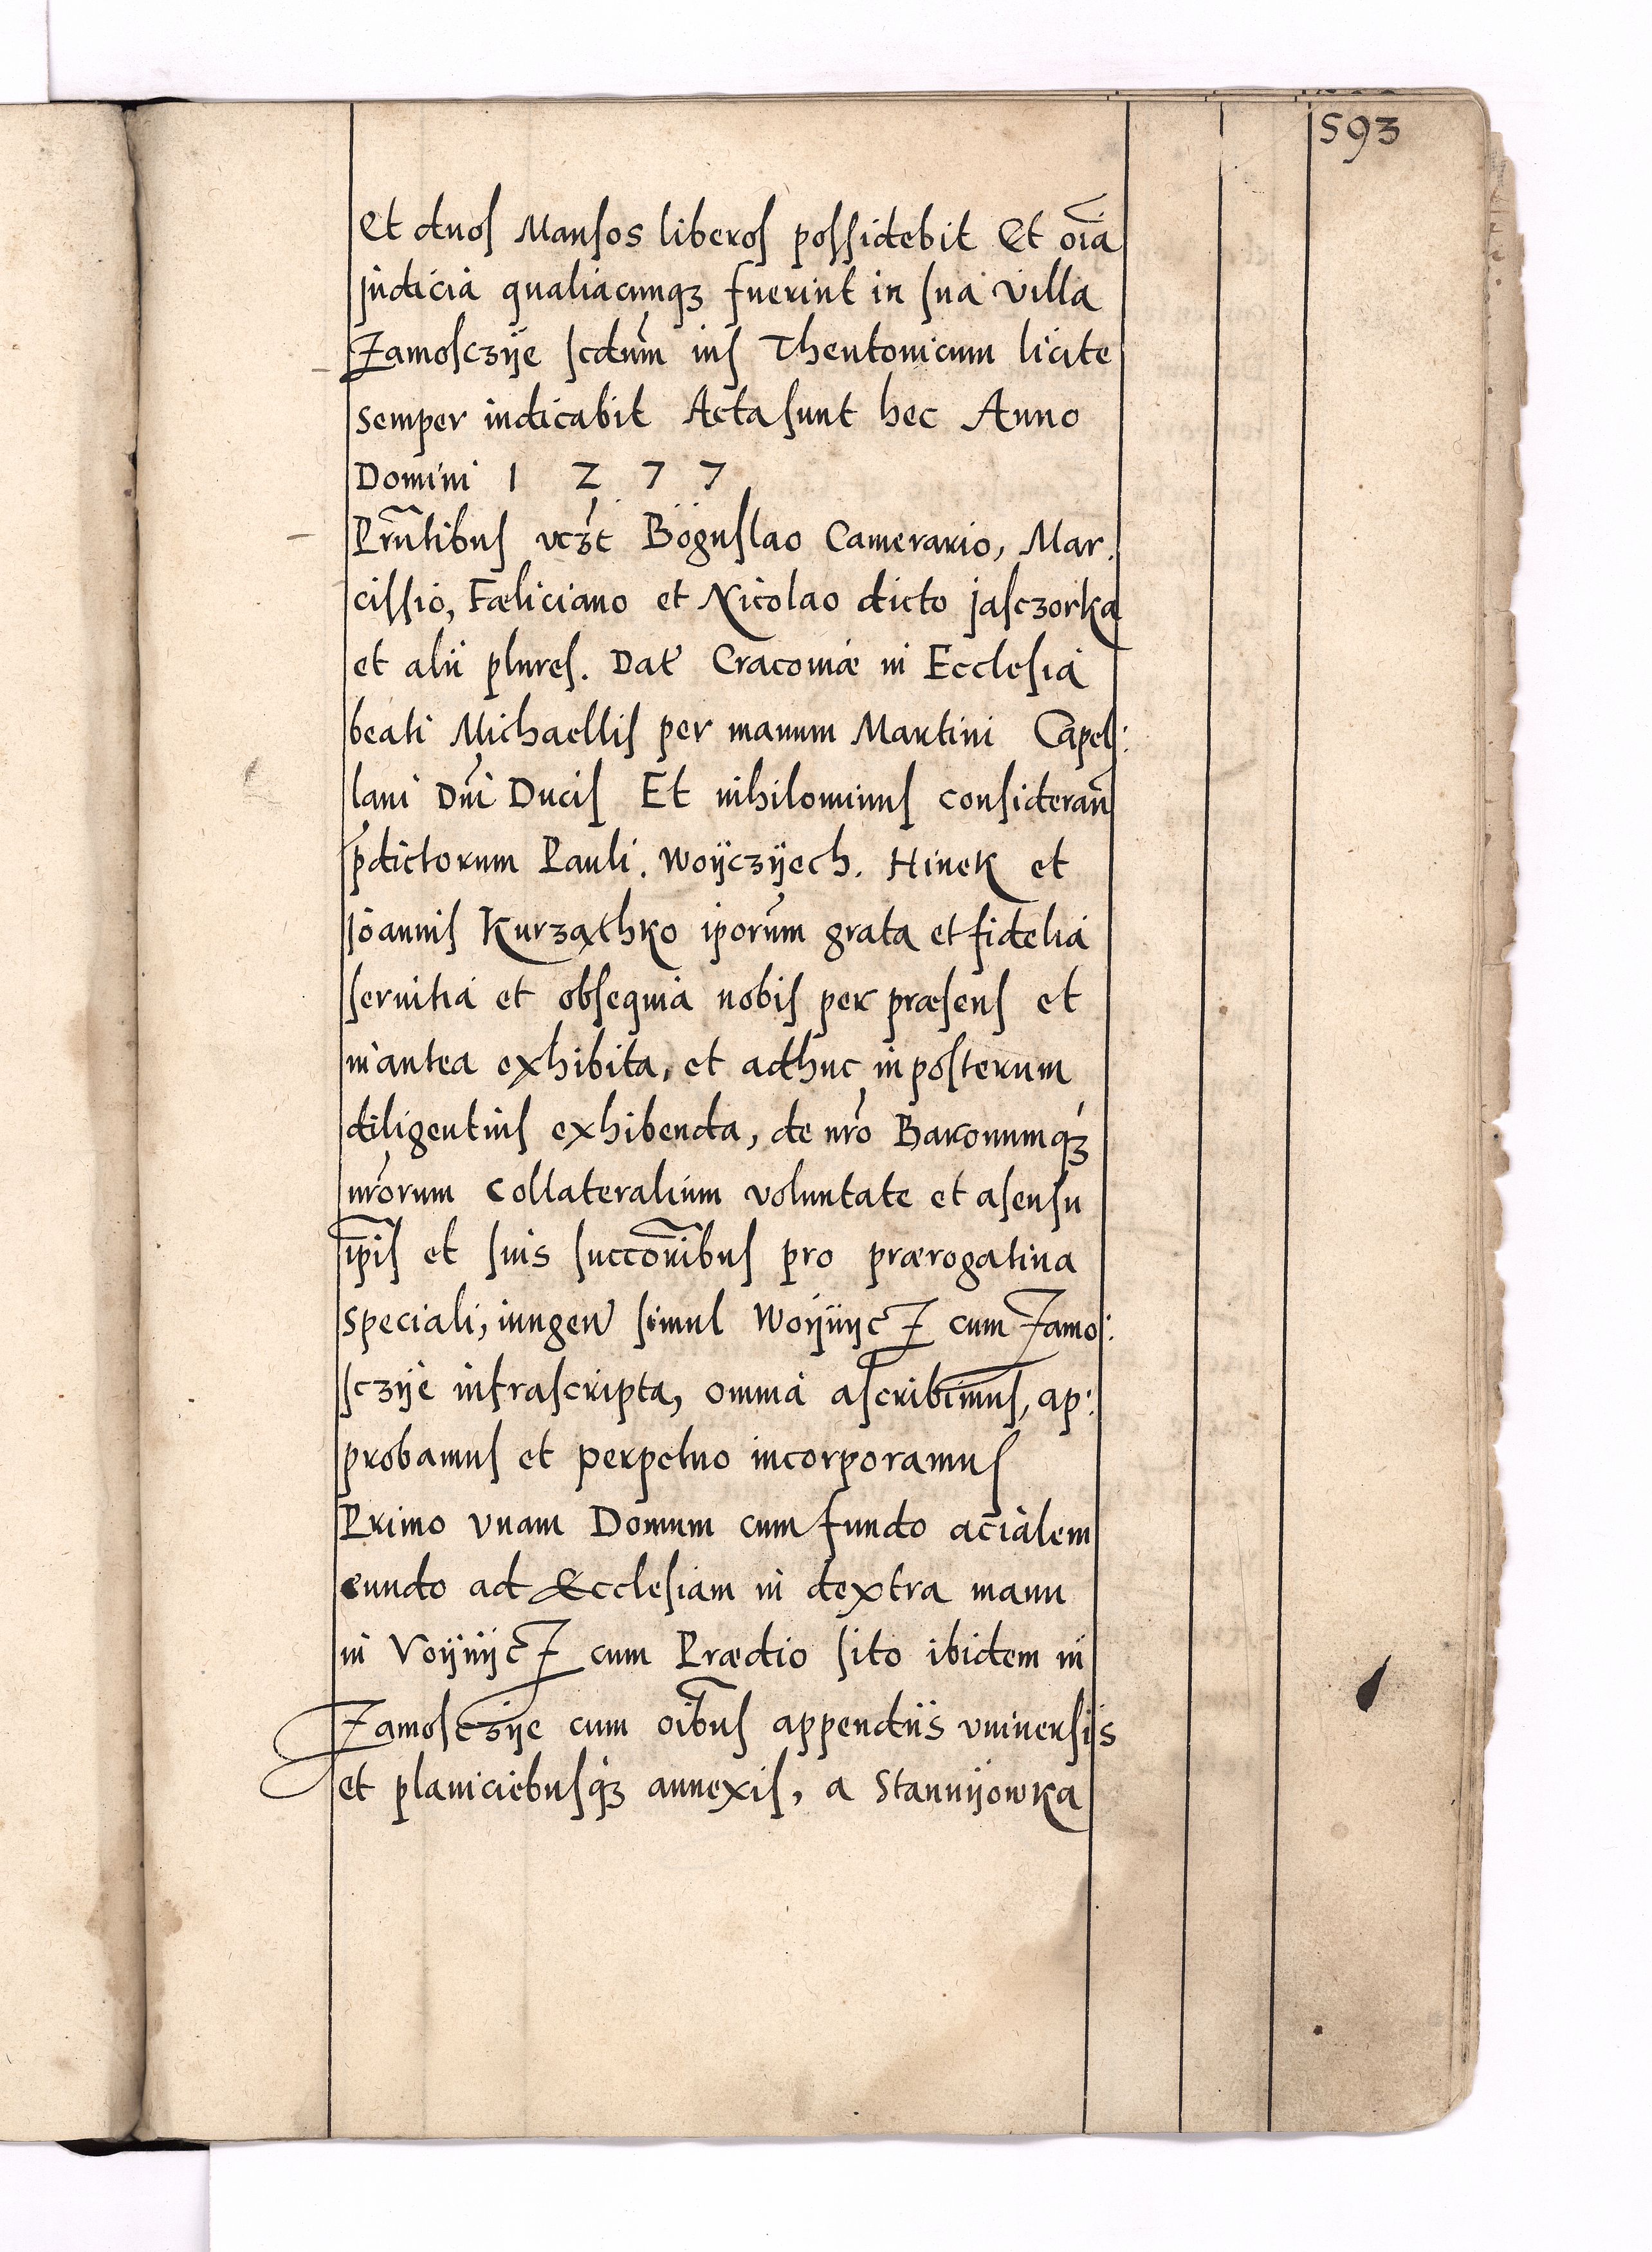 593
Et duos Mansos liberos possidebit Et oîa
judicia qualiacunqꝫ fuerint in sua villa
Zamosczije scdum ius Theutonicum licite
semper iudicabit Acta sunt hec Anno
Domini 1 2 7 7
Prñtibus vcꝫt Boguslao Camerario, Mar.
cissio, Fæliciano et Nicolao dicto jasczorka
et alii plures. Dat Cracouiæ in Ecclesia
beati Michaellis per manum Martini Capel:
lani Dni Ducis Et nihilominus considerañ
pdictorum Pauli. Woijczijech. Hinek et
joannis Kurzathko iporum grata et fidelia
seruitia et obsequia nobis per præsens et
in antea exhibita, et adhuc in posterum
diligentius exhibenda, de nro Baronumqꝫ
nrorum Collateralium voluntate et asensu
ip̄is et suis succoribus pro prærogatiua
speciali, iungeñ simul Woijnicz cum Zamo:
sczije infrascripta, omnia ascribimus, ap:
probamus et perpetuo incorporamus
Primo vnam Domum cum fundo acialem
eundo ad Ecclesiam in dextra manu
in Voijnijcz cum Prædio sito ibidem in
Zamosczije cum oîbus appendiis vniuersis
et planiciebusqꝫ annexis, a Stannijowka